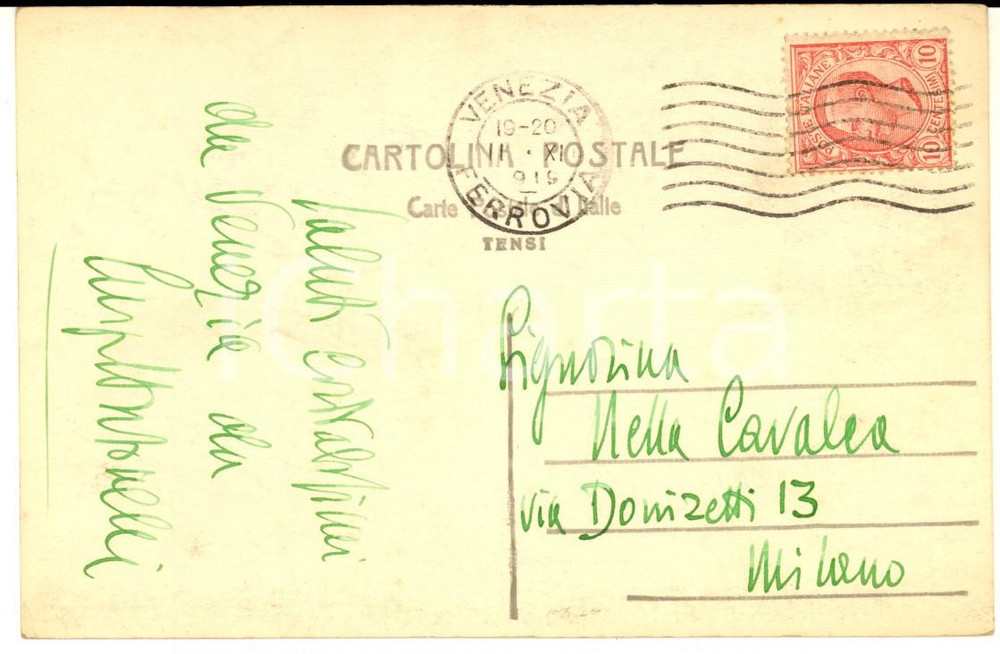 VENEZIA
19-20
11 · XI
FERROVIA
POSTE ITALIANE
10 CENTESIMI 10
CARTOLINA POSTALE
Carte Postale d'Italie
TENSI
Saluti cordialissimi
da Venezia da
Signorina
Nella Cavalca
via Donizetti 13
Milano
iCharta